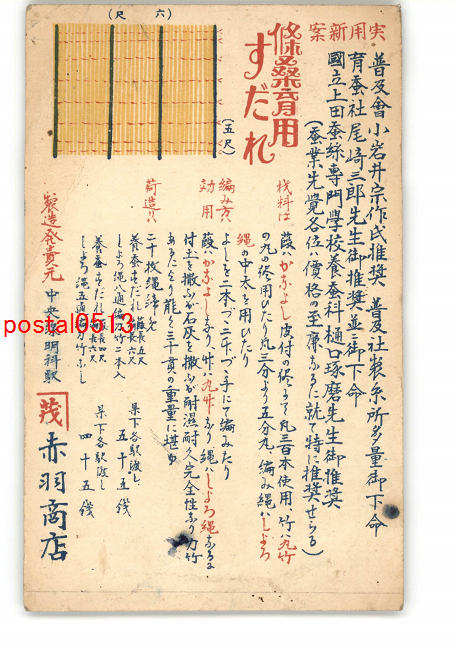 実用新案
條桑育用
すだれ
(六尺)
(五尺)
普及會小岩井宗作氏推奨 普及社製糸所多量御下命
育蚕社尾崎三郎先生御推奨並ニ御下命
國立上田蚕絲専門學校養蚕科樋口琢磨先生御推奨
(蚕業先覺各位ハ價格の至廉なるに就て特に推奨せらる)
材料は 葭ハかなよし皮付の侭よりて丸三百本使用、竹ハ丸竹
の九の侭用ひたり丸三分より五分丸、編み縄ハしよろ
縄の中太を用ひたり
編み方 よしを二本づゝ二十づゝ手にて編みたり
効用 葭ハかなよしなり、竹ハ丸竹なり縄ハしよろ縄なる故
付土を撒ふが石灰を撒ふが耐濕耐久完全性なり力竹
あるより能く三十貫の重量に堪ゆ
荷造ハ 二十枚縄締め
養蚕すだれ 葭長五尺
しよろ縄八通編力竹二本入 縣下各駅渡し 五十五銭
養蚕すだれ 巾長四尺 葭長六尺
しよろ縄五通編力竹なし 縣下各駅渡し 四十五銭
製造発賣元 中央線明科駅
茂 赤羽商店
postal0513